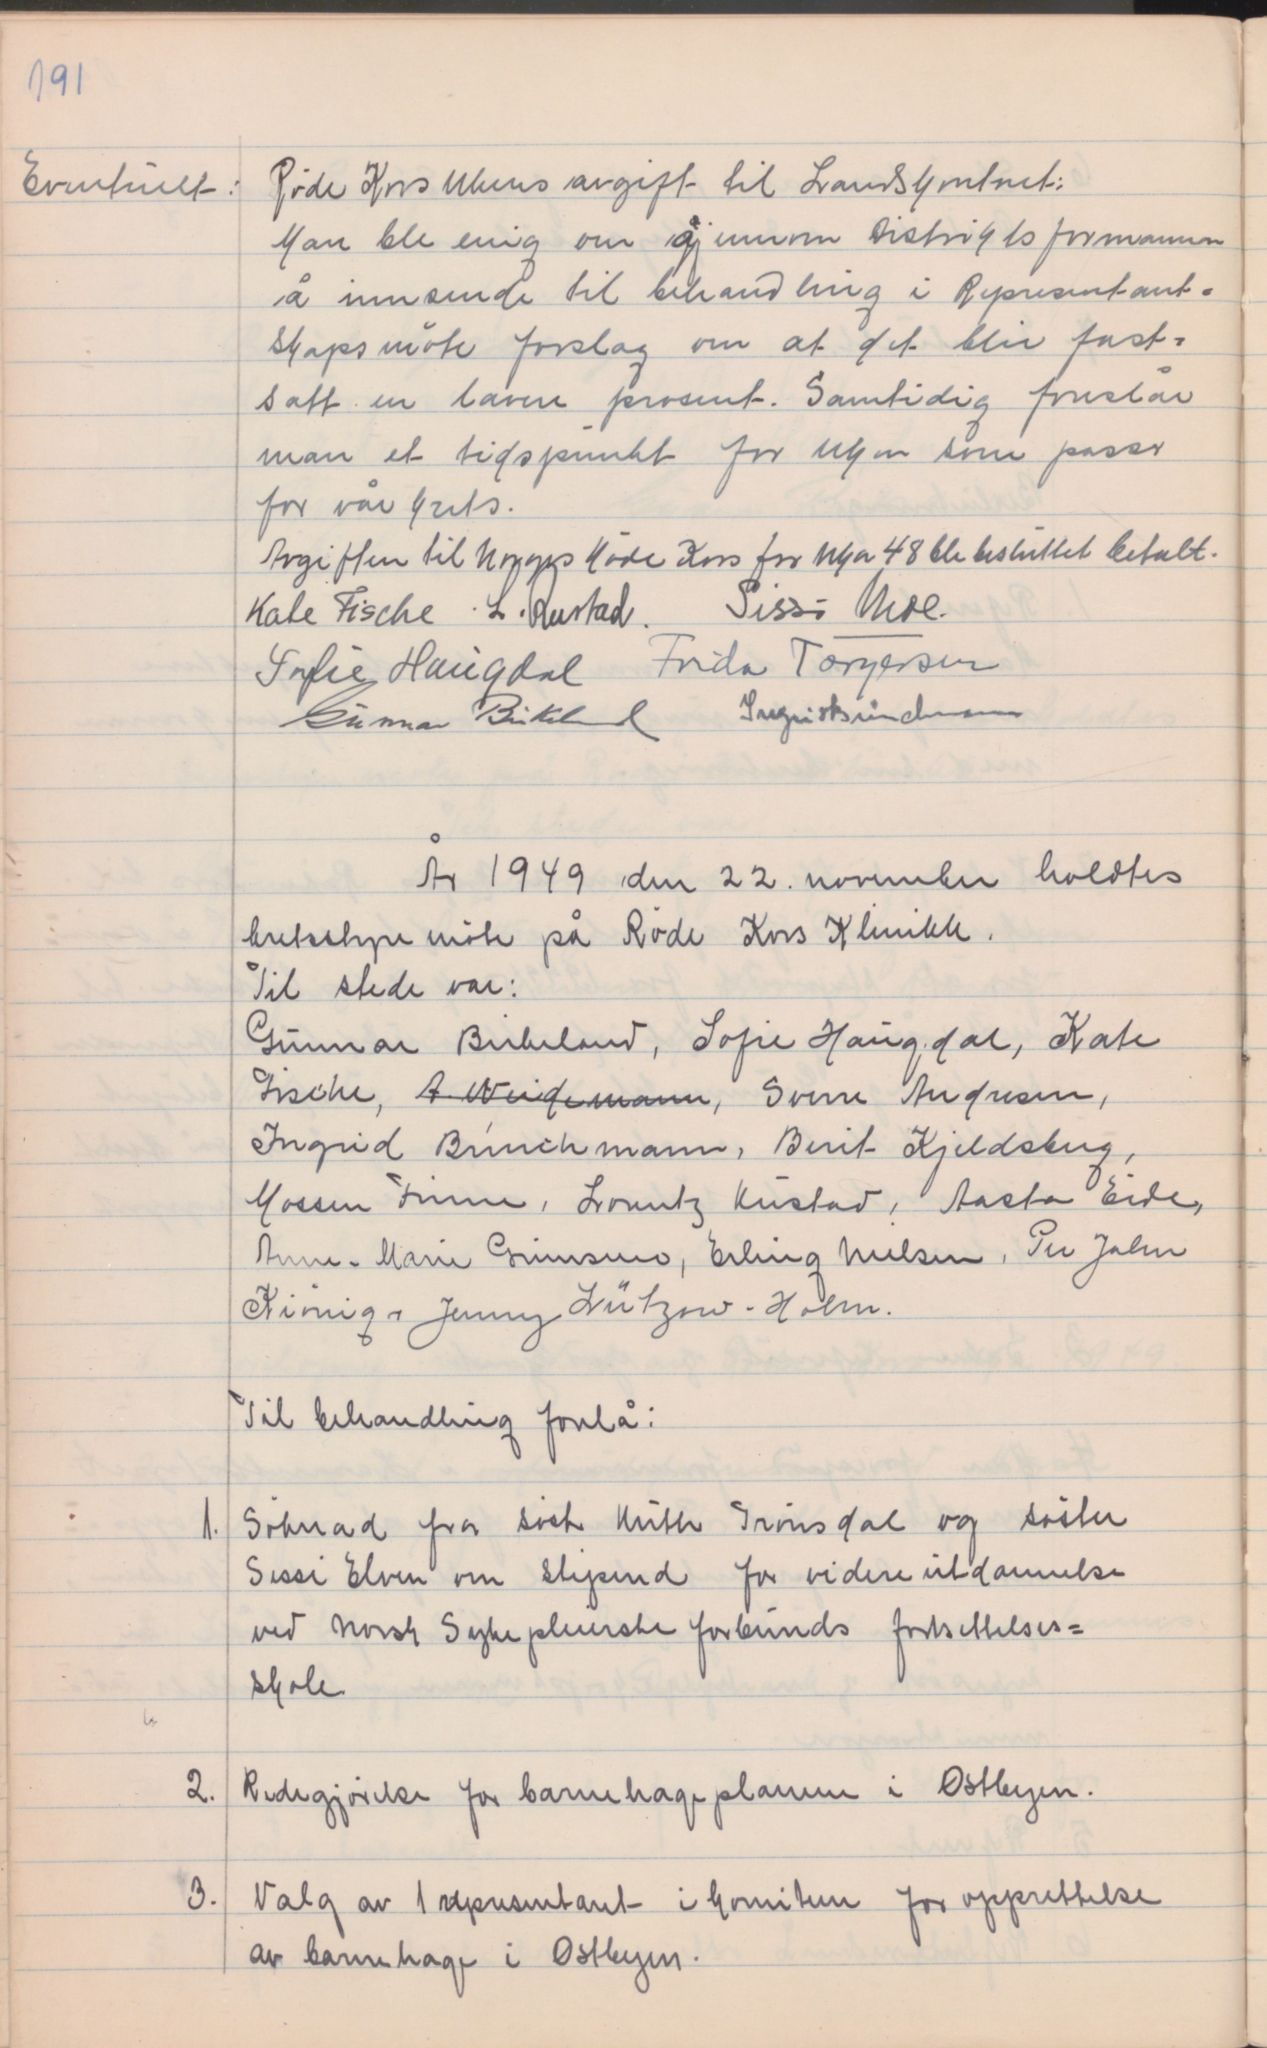 191
Eventuelt: Røde Kors Ukens avgift til Landskontoret:
Man ble enig om gjennom Distriktsformannen
å innsende til behandling i Representant=
skapsmöte forslag om at det blir fast=
satt en lavere prosent. Samtidig foreslår
man et tidspunkt for Uken som passer
for vår krets.
Avgiften til Norges Röde Kors for Uka 48 ble besluttet betalt.
Kate Fische L. Rustad. Sissi Moe.
Sofie Haugdal Frida Torgersen
Gunnar Birkeland Ingrid Bünchmann
År 1949 den 22. november holdtes
kretsstyremöte på Röde Kors Klinikk.
Til stede var:
Gunnar Birkeland, Sofie Haugdal, Kate
Fische, A. Weidemann, Sverre Andresen,
Ingrid Bünchmann, Berit Kjeldsberg,
Mossen Finne, Lorentz Rustad, Aasta Eide,
Anne-Marie Grimsmo, Erling Nielsen, Per John
König, Jenny Lützow-Holm.
Til behandling forelå:
1. Söknad fra söst. Ruth Trönsdal og söster
Sissi Elven om stipend for videre utdannelse
ved Norsk Sykepleierske forbunds fortsettelses=
skole
2. Redegjörelse for barnehageplanene i Østbyen.
3. Valg av 1 representant i komiteen for opprettelse
av barnehage i Østbyen.